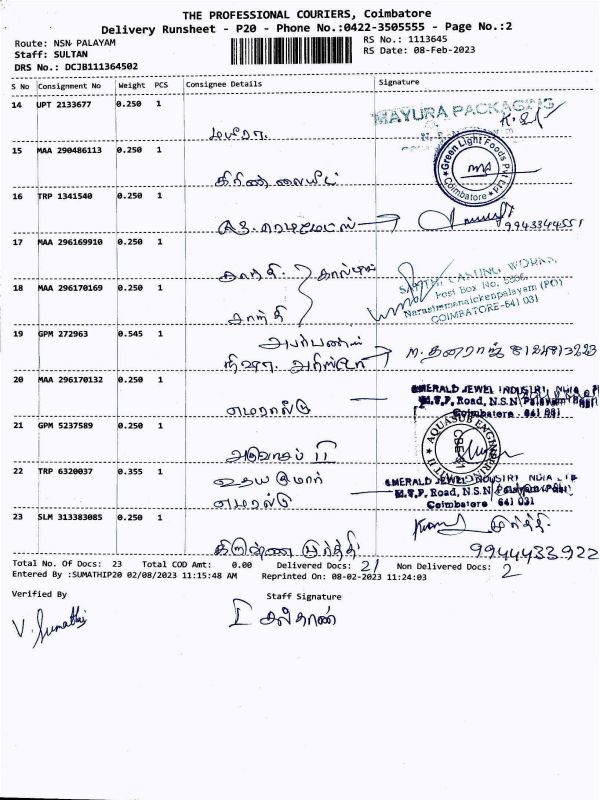 THE PROFESSIONAL COURIERS, Coimbatore
Delivery Runsheet - P20 - Phone No.:0422-3505555 - Page No.:2
Route: NSN PALAYAM
RS No.: 1113645
Staff: SULTAN
RS Date: 08-Feb-2023
DRS No.: DCJB111364502
S No Consignment No Weight PCS Consignee Details Signature
14 UPT 2133677 0.250 1
MAYURA PACKAGING
மயூரா
15 MAA 290486113 0.250 1
Green Light Foods Pvt Ltd
Coimbatore
கிரீன் லைட்
16 TRP 1341540 0.250 1
9943344551
17 MAA 296169910 0.250 1
சாந்தி
18 MAA 296170169 0.250 1
CASTING WORKS
Post Box No.
Narasimmanaickenpalayam (PO)
COIMBATORE-641 031
சாந்தி
19 GPM 272963 0.545 1
20 MAA 296170132 0.250 1
EMERALD JEWEL INDUSTRY INDIA
M.T.P. Road, N.S.N Palayam
Coimbatore - 641 031
எமரால்டு
21 GPM 5237589 0.250 1
AQUASUB ENGINEERING
UNIT II
II
22 TRP 6320037 0.355 1
உதய குமார்
EMERALD JEWEL INDUSTRY INDIA
M.T.P. Road, N.S.N
Coimbatore 641 031
எமரால்டு
23 SLM 313383085 0.250 1
மூர்த்தி
கிருஷ்ண மூர்த்தி
9944433922
Total No. Of Docs: 23 Total COD Amt: 0.00 Delivered Docs: 21 Non Delivered Docs: 2
Entered By :SUMATHIP20 02/08/2023 11:15:48 AM Reprinted On: 08-02-2023 11:24:03
Verified By
Staff Signature
V. Sumathi
சுல்தான்